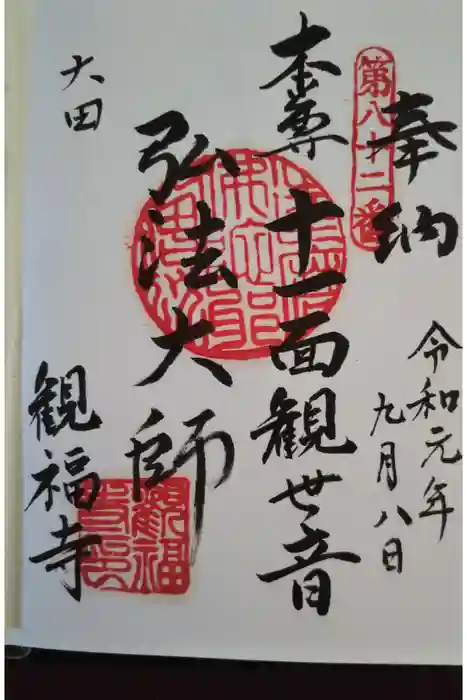 奉納
第八十二番
令和元年
九月八日
本尊十一面観世音
弘法大師
大田
観福寺